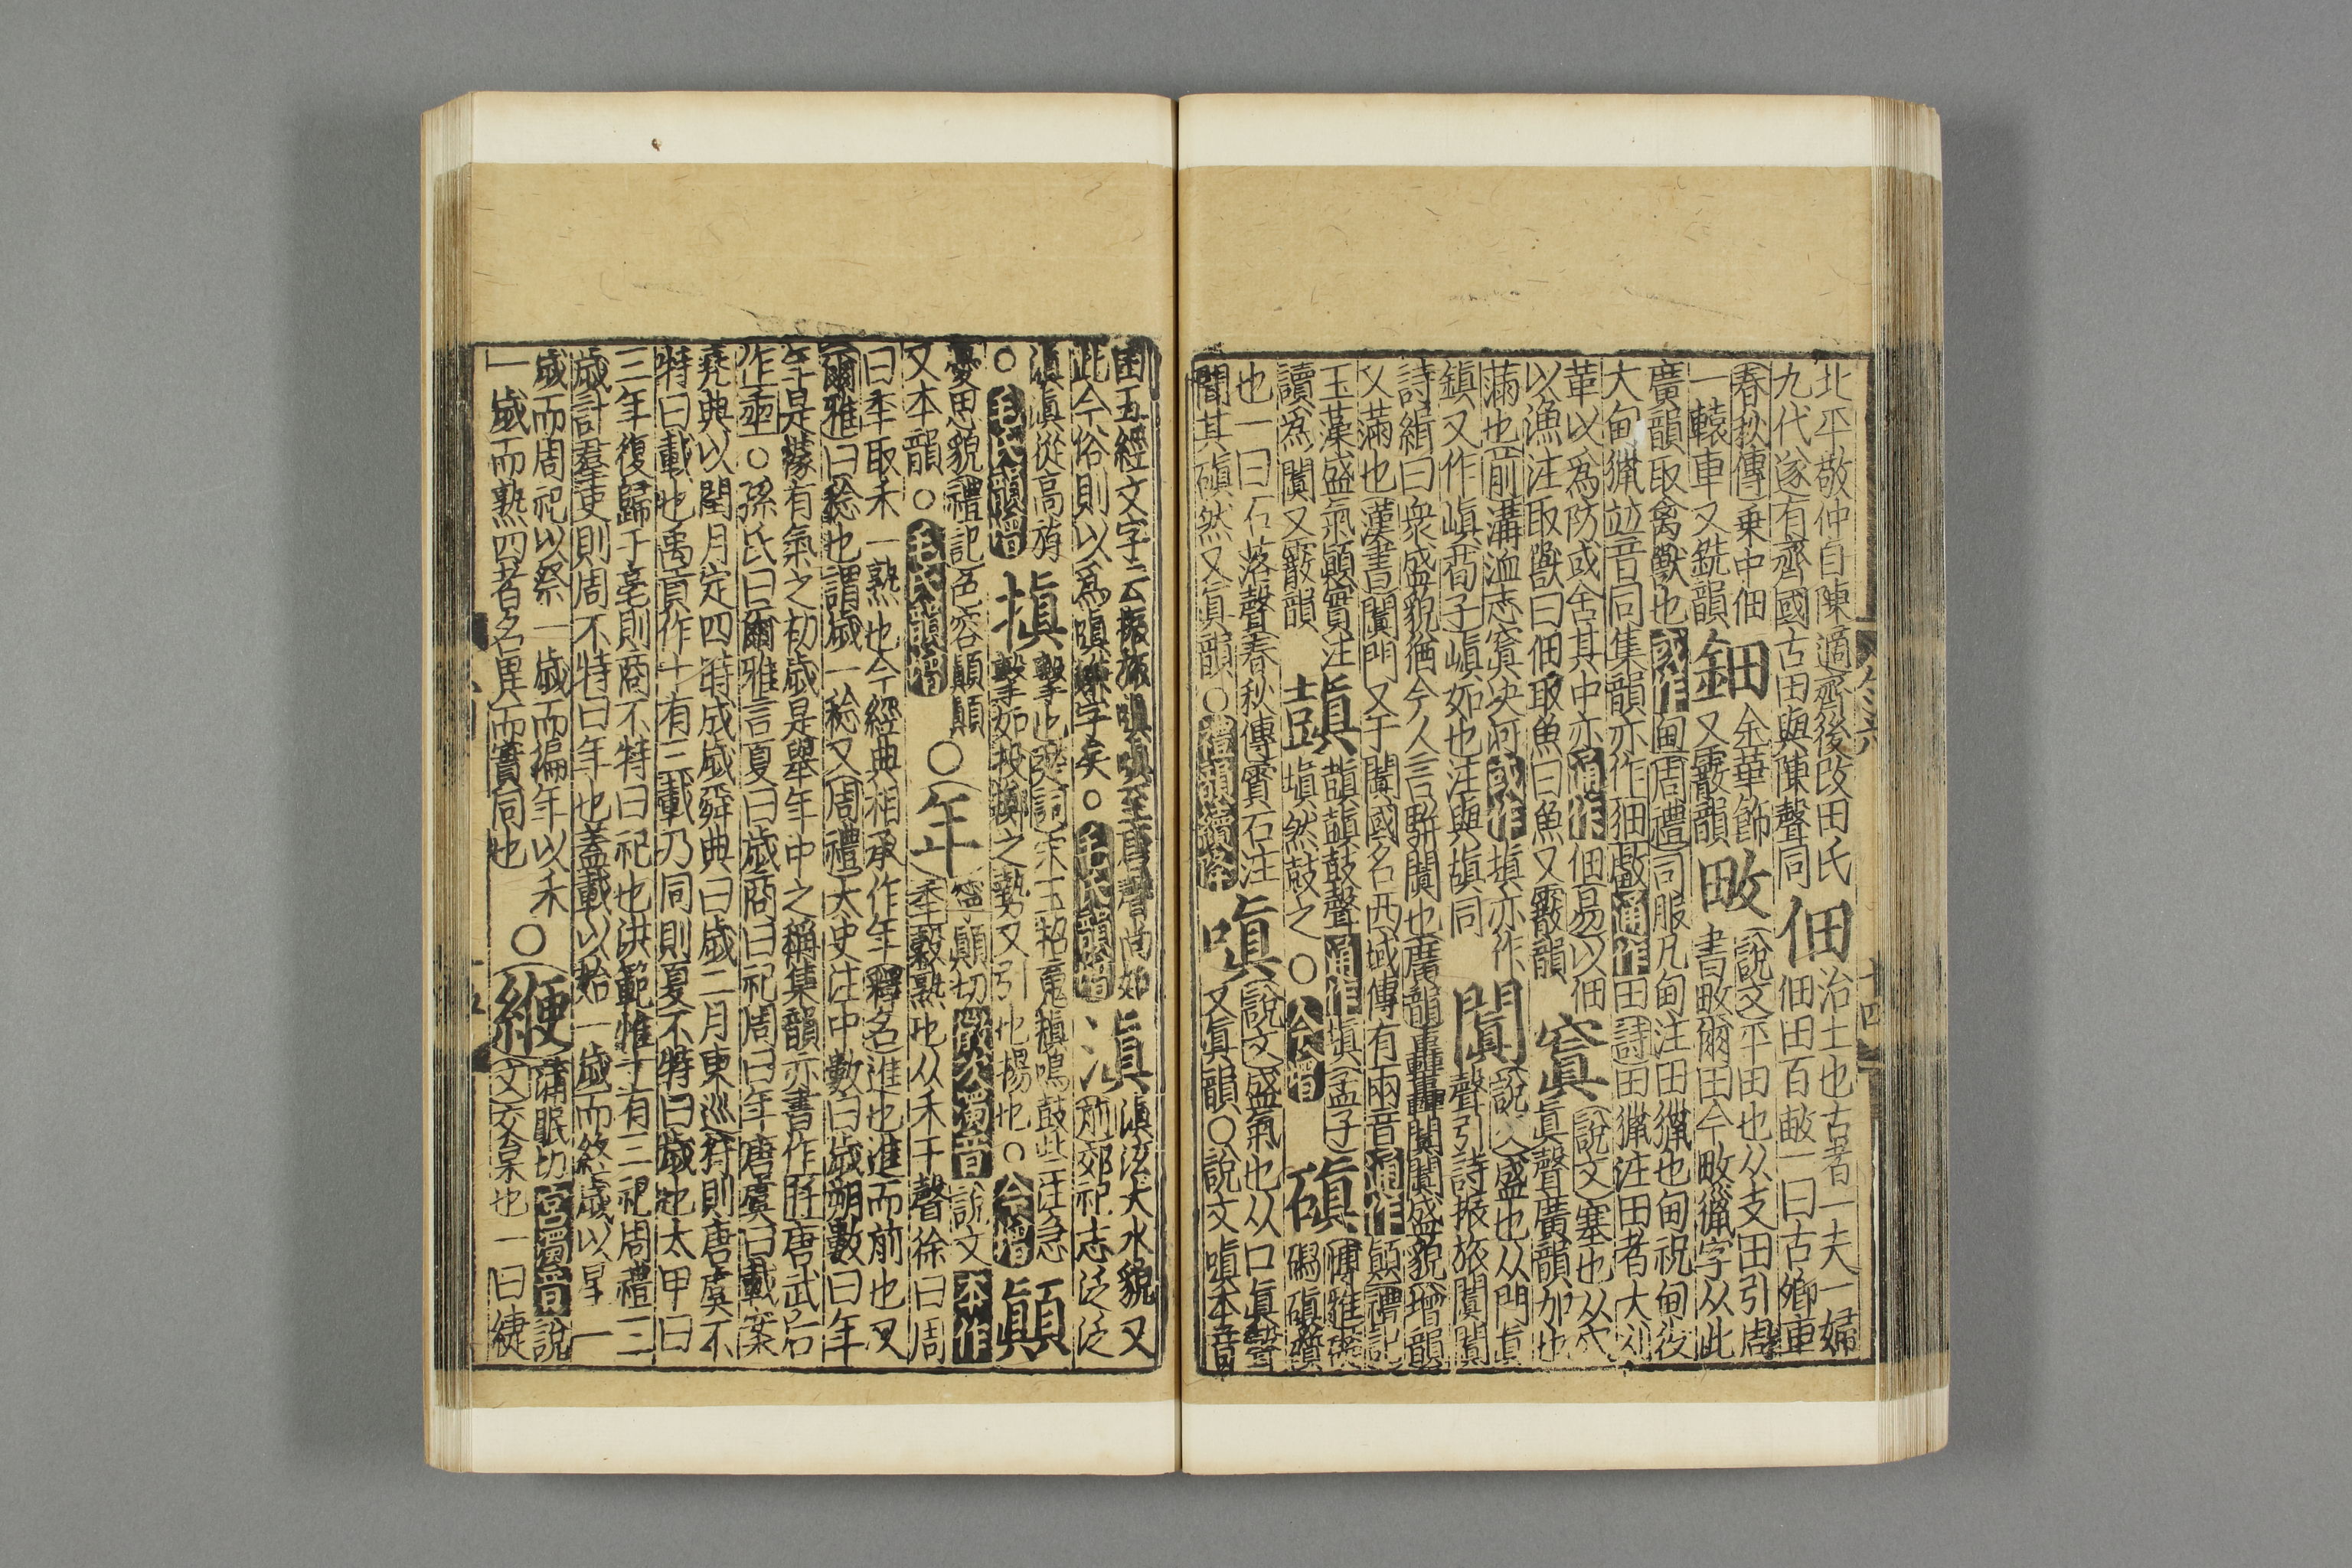 北平敬仲自陳適齊後改田氏
九代遂有齊國古田與陳聲同
佃
治土也古者一夫一婦
佃田百畝一曰古卿車
春秋傳乗中佃
一轅車又銑韻
鈿
金華飾
又霰韻
畋
說文平田也从攴田引周
書畋爾田今畋獵字从此
廣韻取禽獸也或作甸周禮司服凡甸注田獵也甸祝甸役
大甸獵竝音同集韻亦作畋通作田詩田獵注田者大刈
草以爲防或舍其中亦通作佃易以佃
以漁注取獸曰佃取魚曰魚又霰韻
窴
說文塞也从穴
眞聲廣韻加也
滿也前溝洫志窴決河或作塡亦作
鎮又作嵮荀子嵮如也注與塡同
闐
說文盛也从門眞
聲引詩振旅闐闐
詩緝曰衆盛貌猶今人言駢闐也廣韻轟轟闐闐盛貌增韻
又滿也漢書闐門又于闐國名西域傳有兩音通作顚禮記
玉藻盛氣顚實注
讀爲闐又霰韻
鼞
鼓聲通作塡孟子
塡然鼓之○今增
磌
博雅礎
碣磌礩
也一曰石落聲春秋傳霣石注
聞其磌然又眞韻○禮韻續降
嗔
說文盛氣也从口眞聲
又眞韻○說文嗔本音
田五經文字云振旅嗔嗔至唐曆尚如
此今俗則以爲瞋嫌字矣○毛氏韻增
滇
滇泫大水貌又
前郊祀志泛泛
滇滇從高斿
○毛氏韻增
搷
擊也楚詞宋玉招魂搷鳴鼓些注急
擊如投擲之勢又引也揚也○今增
顚
憂思貌禮記色容顚顚
又本韻○毛氏韻增
○年
寧顚切徵次濁音說文本作
秊穀熟也从禾千聲徐曰周
曰年取禾一熟也今經典相承作年釋名進也進而前也又
爾雅曰稔也謂歲一稔又周禮大史注中數曰歲朔數曰年
年是據有氣之初歲是舉年中之稱集韻亦書作秊唐武后
作𠡦○孫氏曰爾雅言夏曰歲商曰祀周曰年唐虞曰載案
堯典以閏月定四時成歲舜典曰歲二月東巡狩則唐虞不
特曰載也禹貢作十有三載乃同則夏不特曰歲也太甲曰
三年復歸于亳則商不特曰祀也洪範惟十有三祀周禮三
歲計羣吏則周不特曰年也蓋載以始一歲而終歲以星一
歲而周祀以祭一歲而徧年以禾
一歲而熟四者名異而實同也
○緶
蒲眠切宮濁音說
文交枲也一曰緁